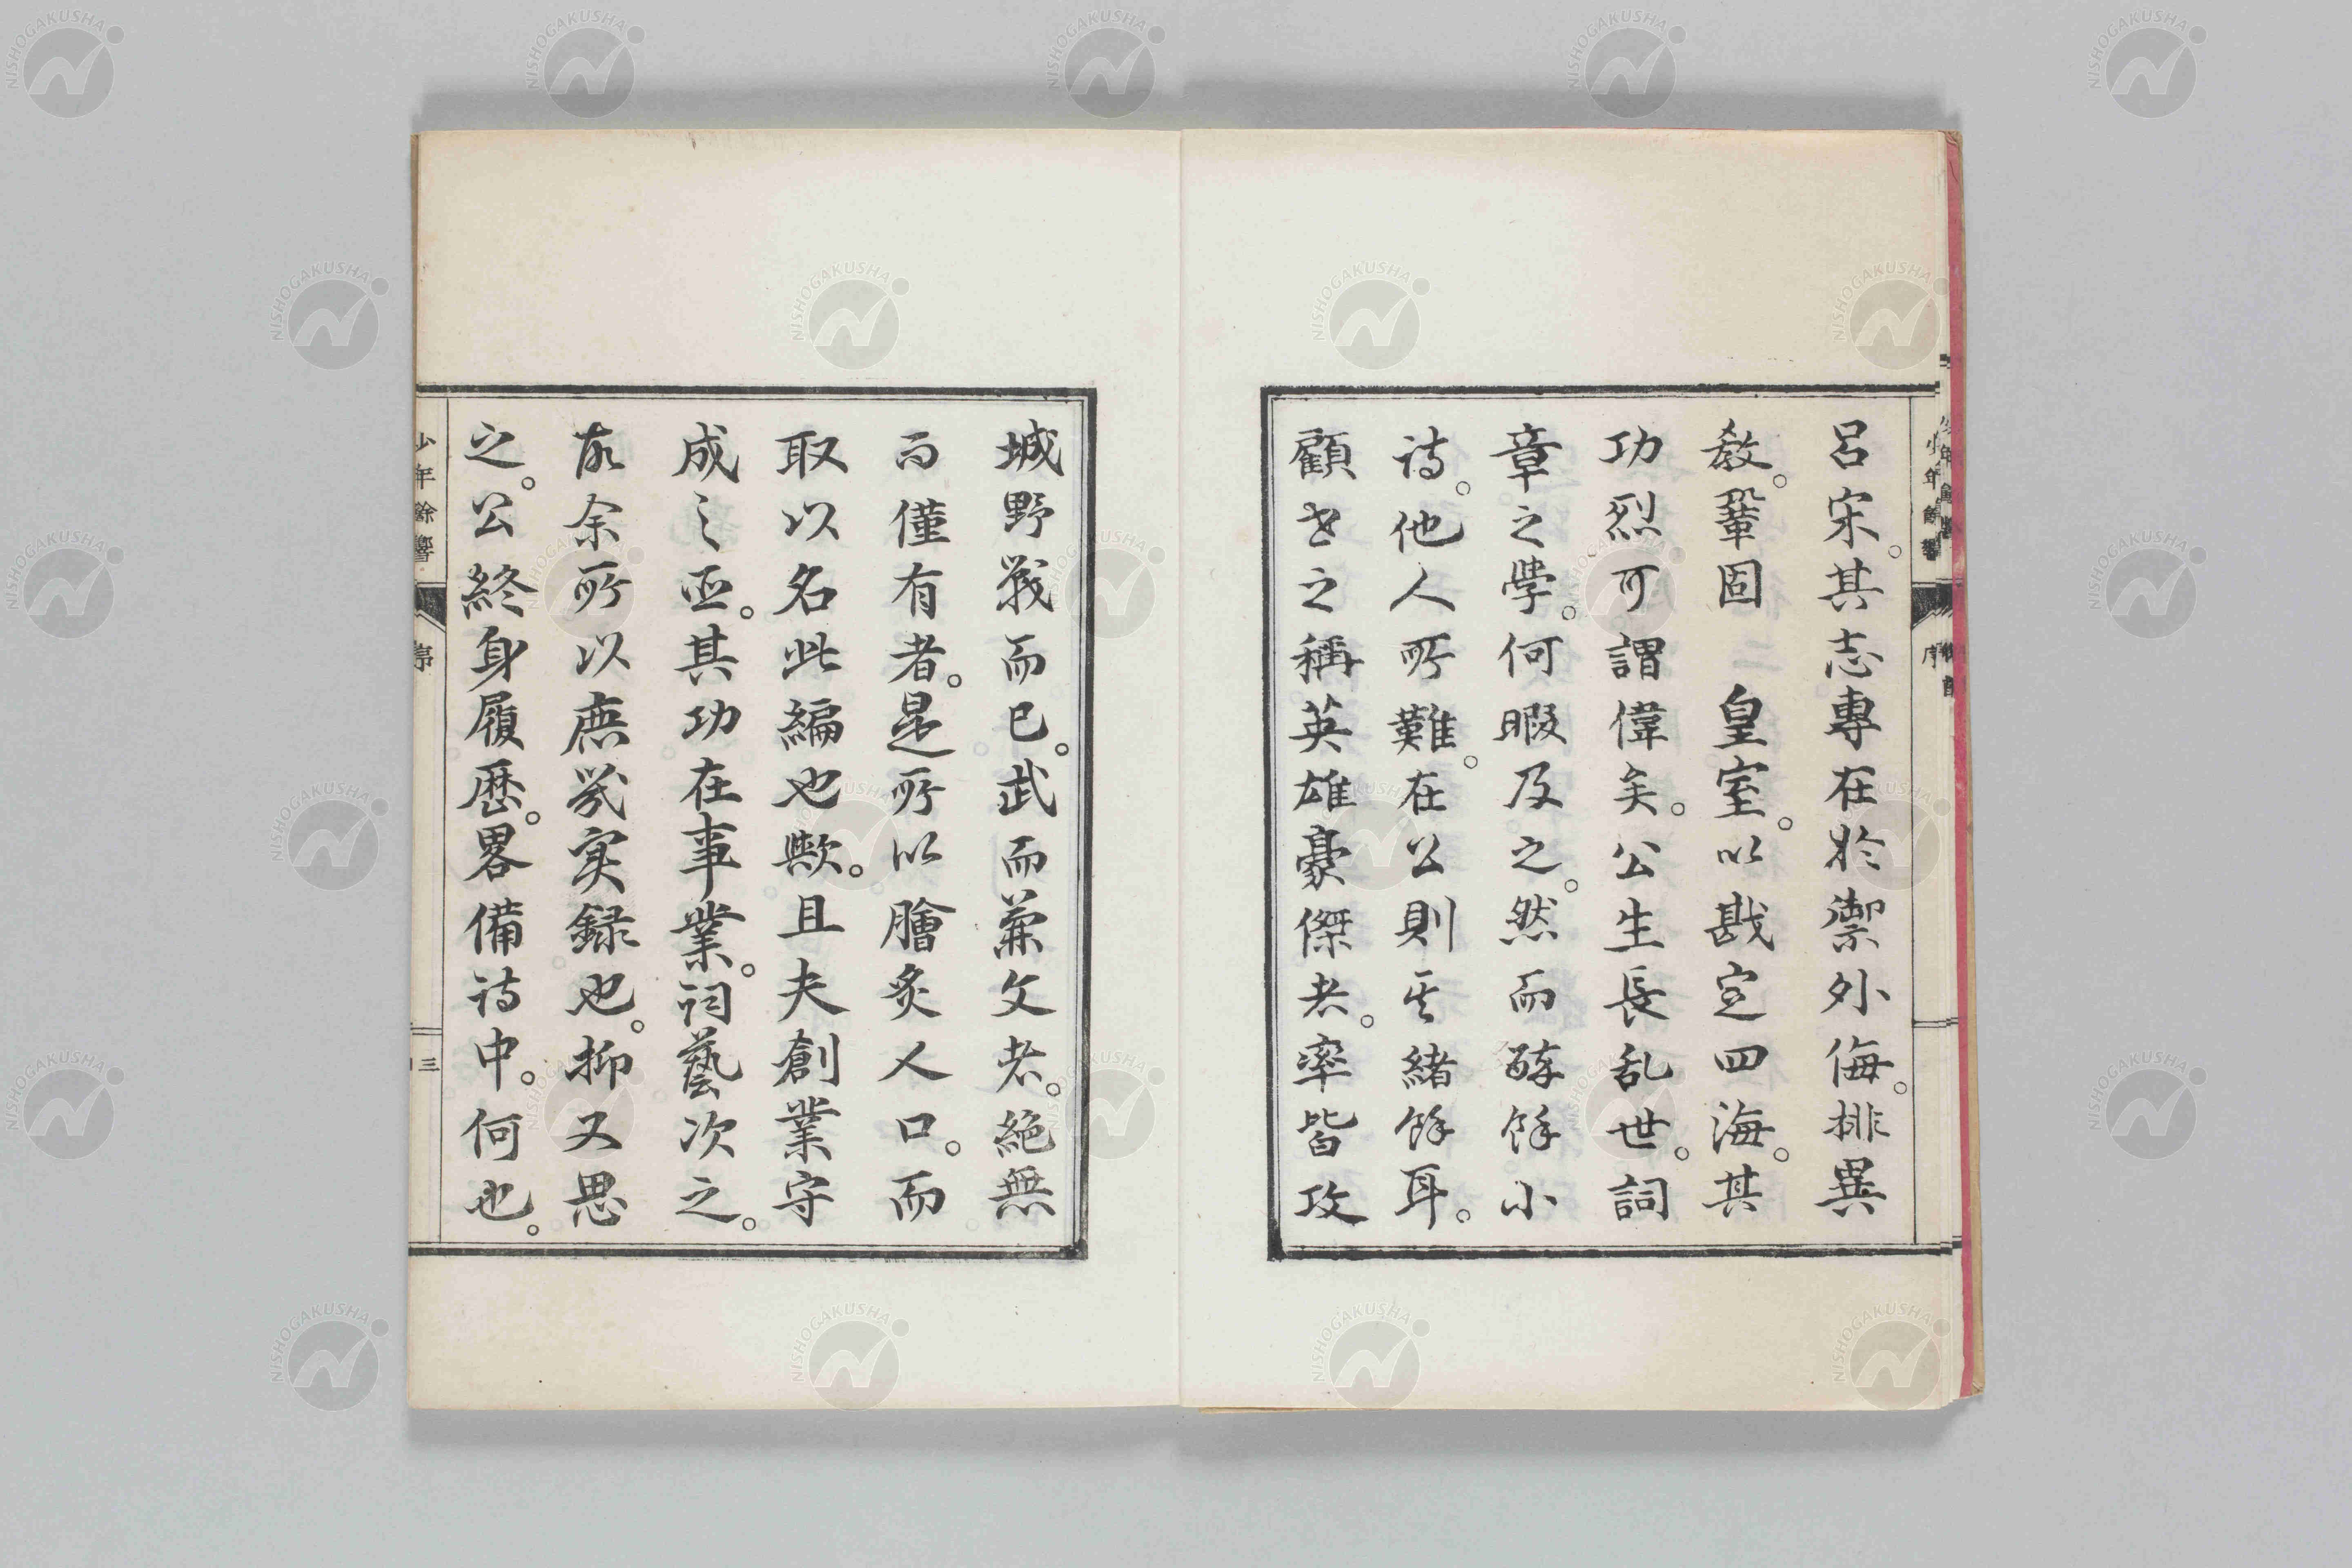 呂宋。其志專在於禦外侮。排異
教。鞏固　皇室。以戡定四海。其
功烈可謂偉矣。公生長乱世。詞
章之學。何暇及之。然而酔餘小
詩。他人所難。在公則其緒餘耳。
顧世之稱英雄豪傑者。率皆攻
城野戰而已。武而兼文者。絶無
而僅有者。是所以膾炙人口。而
取以名此編也歟。且夫創業守
成之臣。其功在事業。詞藝次之。
故余所以庶幾実録也。抑又思
之。公終身履歴。畧備詩中。何也。
少年餘響
序
三
少年餘響
序
NISHOGAKUSHA